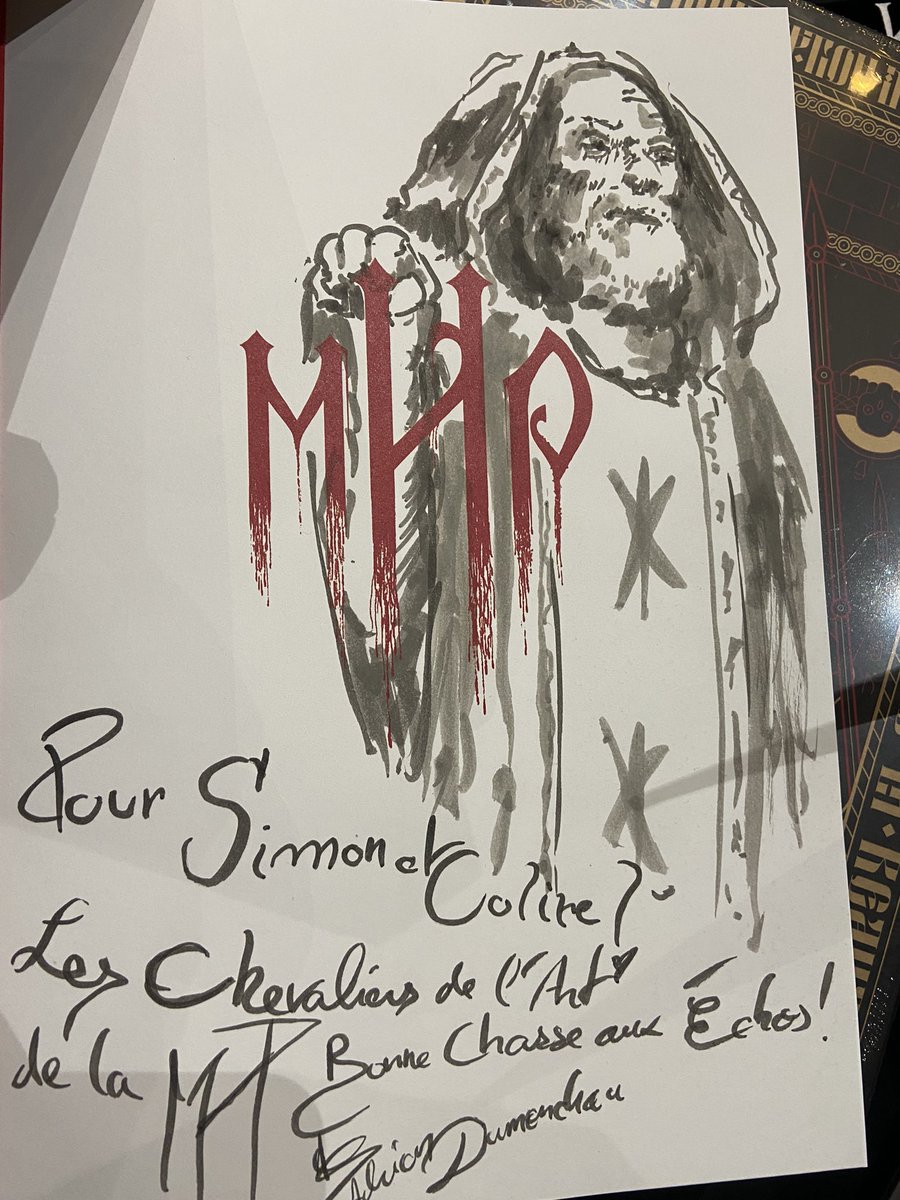 MHP
Pour Simon et
Coline
Les Chevaliers de l'Art
de la MHP
Bonne Chasse aux Échos !
Adrian